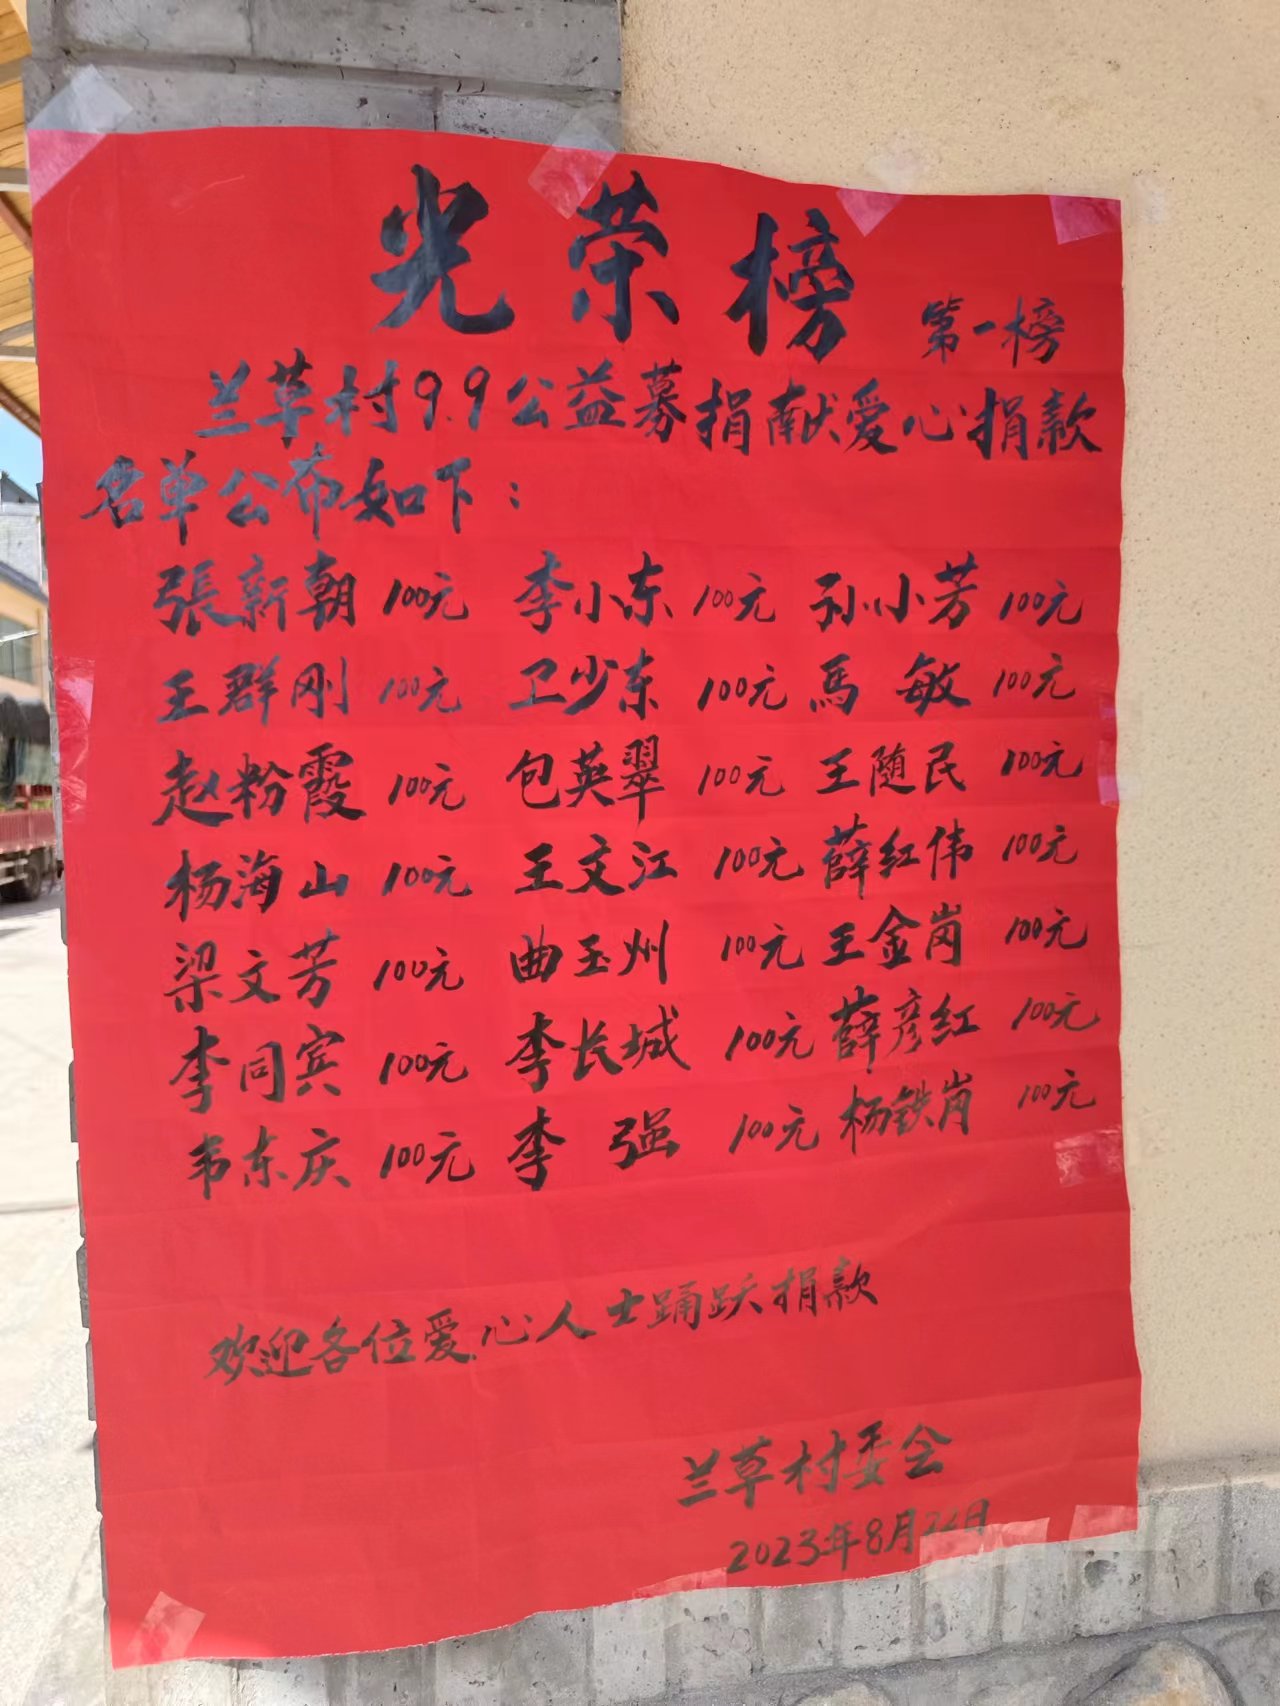 光荣榜 第一榜
兰草村9.9公益募捐献爱心捐款
名单公布如下：
張新朝 100元 李小东 100元 孙小芳 100元
王群刚 100元 卫少东 100元 馬敏 100元
赵粉霞 100元 包英翠 100元 王随民 100元
杨海山 100元 王文江 100元 薛红伟 100元
梁文芳 100元 曲玉州 100元 王金岗 100元
李同宾 100元 李长城 100元 薛彦红 100元
韦东庆 100元 李强 100元 杨铁岗 100元
欢迎各位爱心人士踊跃捐款
兰草村委会
2023年8月 日